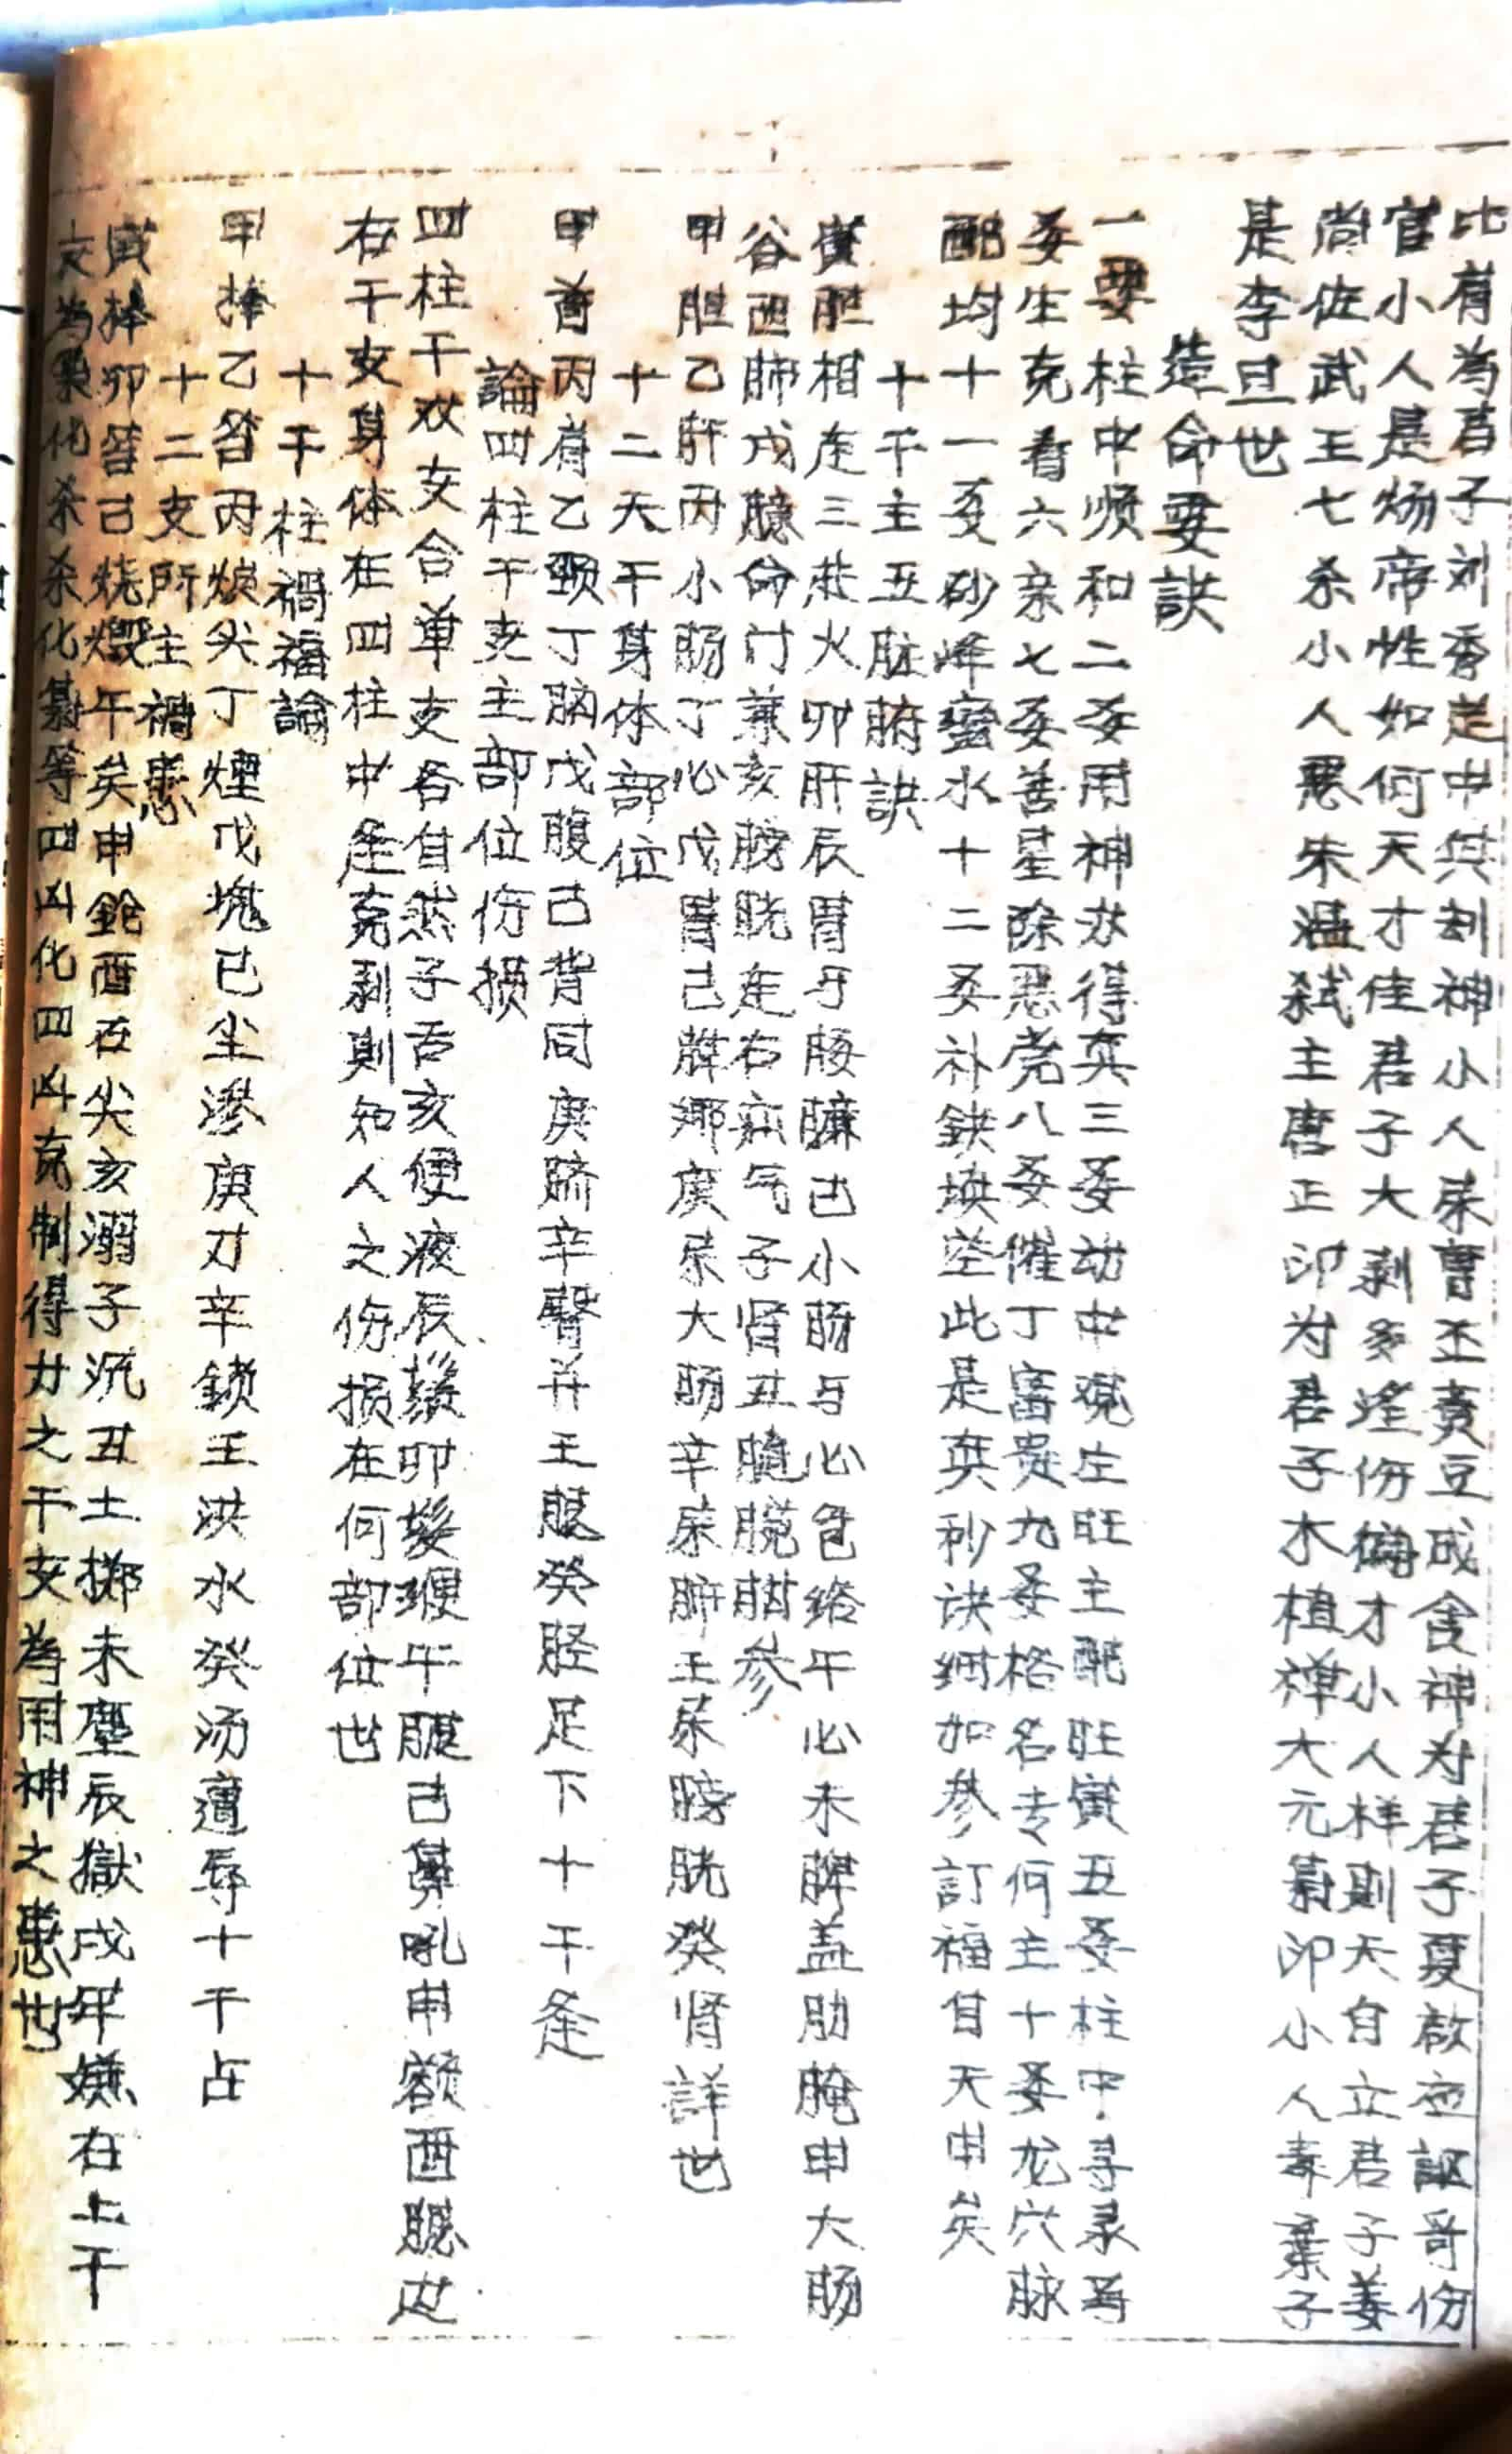 比肩為君子刘秀是中兴刦神小人宋曹丕責豆成食神为君子夏啟立謳哥伤
官小人是炀帝性如何天才佳君子大剥多淫伤偏才小人样则天自立君子姜
尚佐武王七杀小人恶朱温弑主唐正印为君子木植禅大元梟印小人毒棄子
是李旦也
造命要訣
一要柱中顺和二要用神求得真三要劫中观生旺主配旺寅五要柱中寻录寻
要生克看六亲七要善星除恶党八要催丁富贵九要格名专何主十要龙穴脉
配均十一要砂峰蛮水十二要补缺填空此是真秒诀細加參訂福自天申矣
十干主五脏腑訣
寅胆相连三焦火卯肝辰胃与腰臁巳小肠与心包络午心未脾盖肋腌申大肠
谷酉肺戌臆命门兼亥膀胱连右气子肾丑脾腕腊参
甲胆乙肝丙小肠丁心戊胃己脾鄉庚系大肠辛系肺壬系膀胱癸肾詳也
十二天干身体部位
甲首丙肩乙颈丁脑戊腹己背同庚脐辛臀并壬腿癸胫足下十干逢
論四柱干支主部位伤损
四柱干双支合单支各自然子舌亥便液辰鬚卯髮午眼己鼻吼申额酉聪边
右干支身体在四柱中逢克剥則知人之伤损在何部位也
十干柱禍福論
甲棒乙笞丙燬尖丁煙戊塊已尘渗庚刀辛鎖壬洪水癸汤遭辱十干占
十二支所主禍患
寅棒卯笞已烧燬午矣申鎗酉石尖亥溺子沉丑土掷未塵辰獄戌牢嫌右上干
支為梟化杀杀化梟等四凶化四凶克制得力之干支為用神之患也